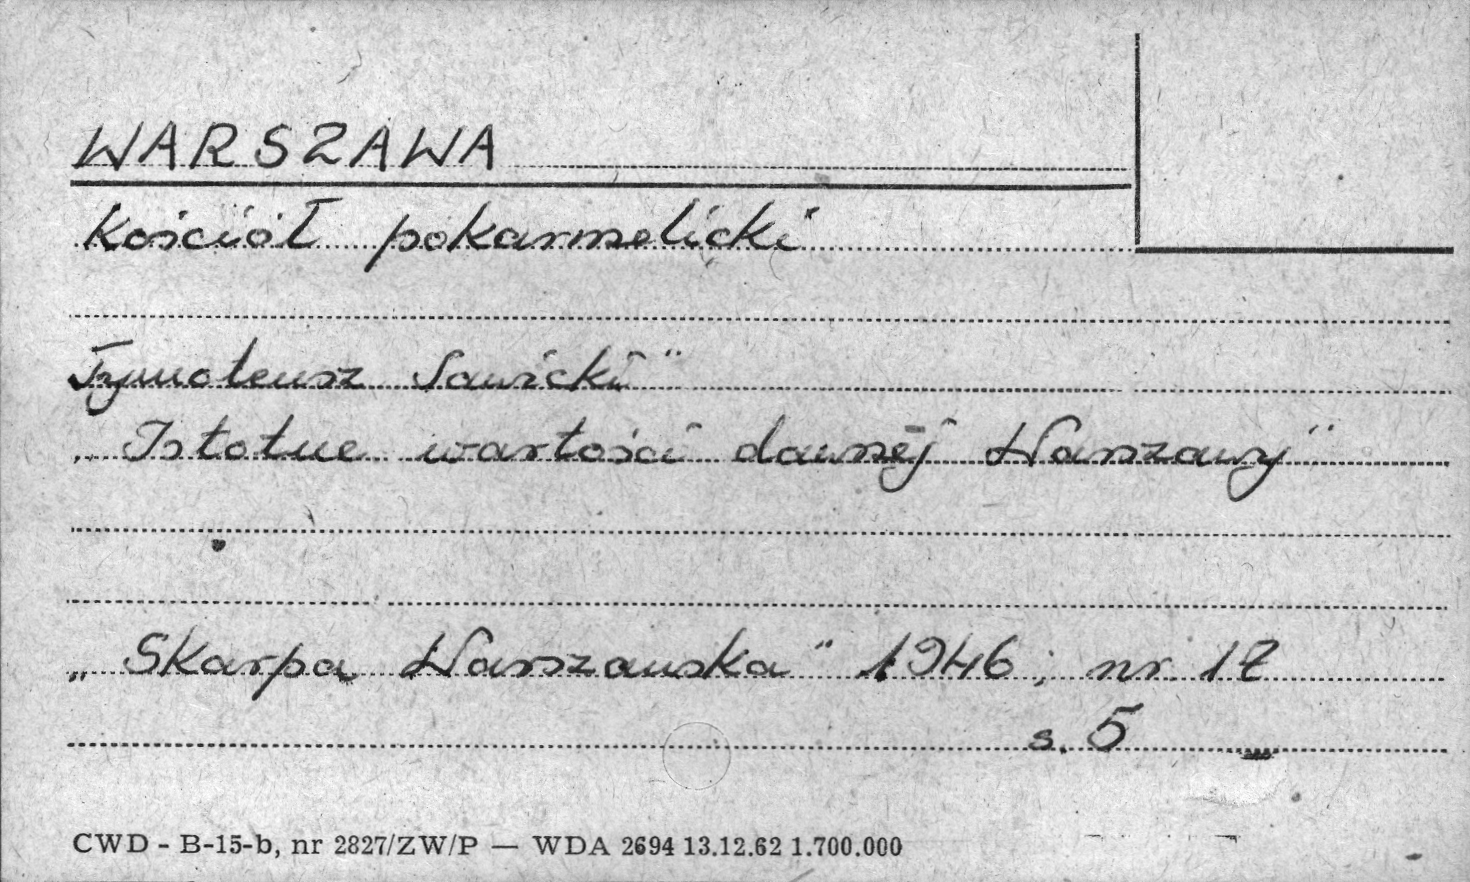 WARSZAWA
Kościół pokarmelicki
Tymoteusz Sawicki"
„Istotne wartości dawnej Warszawy"
„Skarpa Warszawska" 1946; nr 17
s. 5
CWD - B-15-b, nr 2827/ZW/P — WDA 2694 13.12.62 1.700.000